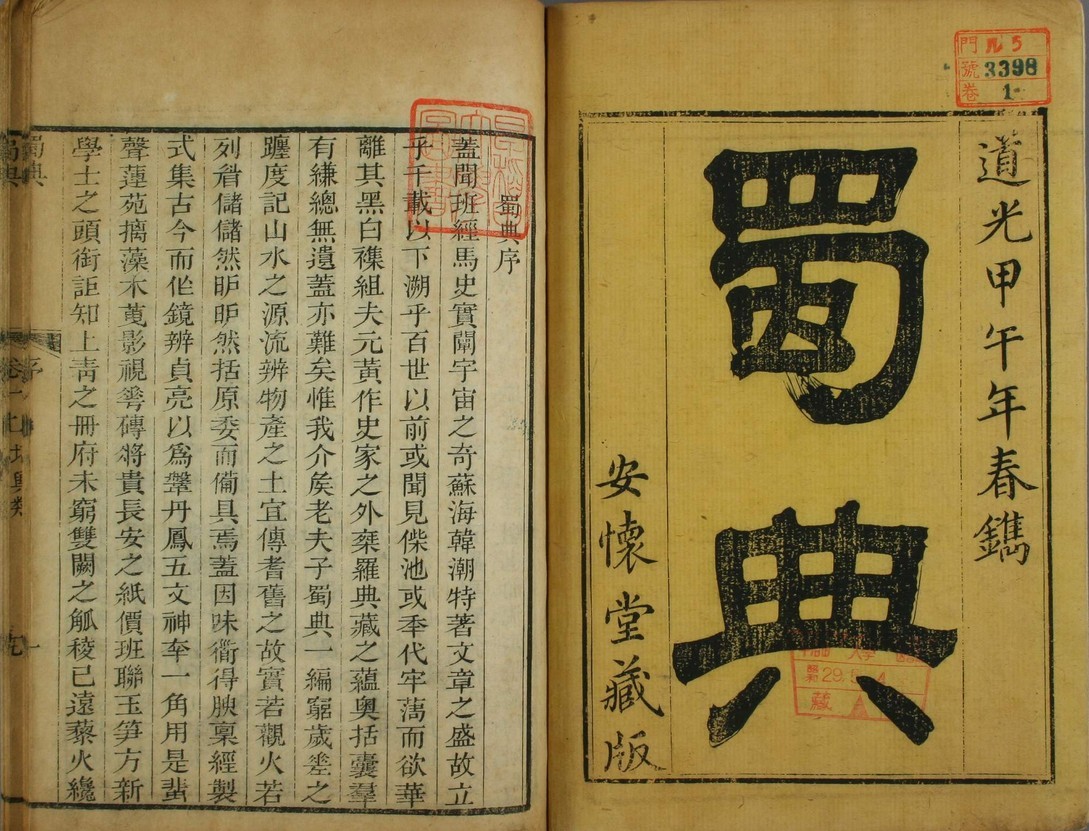 道光甲午年春鐫
蜀典
安懷堂藏版
門 ル5
號 3398
卷 1
蜀典序
蓋聞班經馬史實闡宇宙之奇蘇海韓潮特著文章之盛故立
乎千載以下溯乎百世以前或聞見傑池或秊代牢蕅而欲華
離其黑白襍組夫元黃作史家之外棄羅典藏之蘊奧括囊羣
有縑總無遺蓋亦難矣惟我介矦老夫子蜀典一編窮歲差之
躔度記山水之源流辨物產之土宜傳耆舊之故實若觀火若
列眉儲儲然昈昈然括原委而僃具焉蓋因味衜得腴稟經製
式集古今而作鏡辨貞亮以爲鞶丹鳳五文神奎一角用是蜚
聲蓮苑摛藻木萈影視甇磚將貴長安之紙價班聯玉笋方新
學士之頭銜詎知上靑之冊府未窮雙闕之觚稜已遠藜火纔
蜀典
序
一